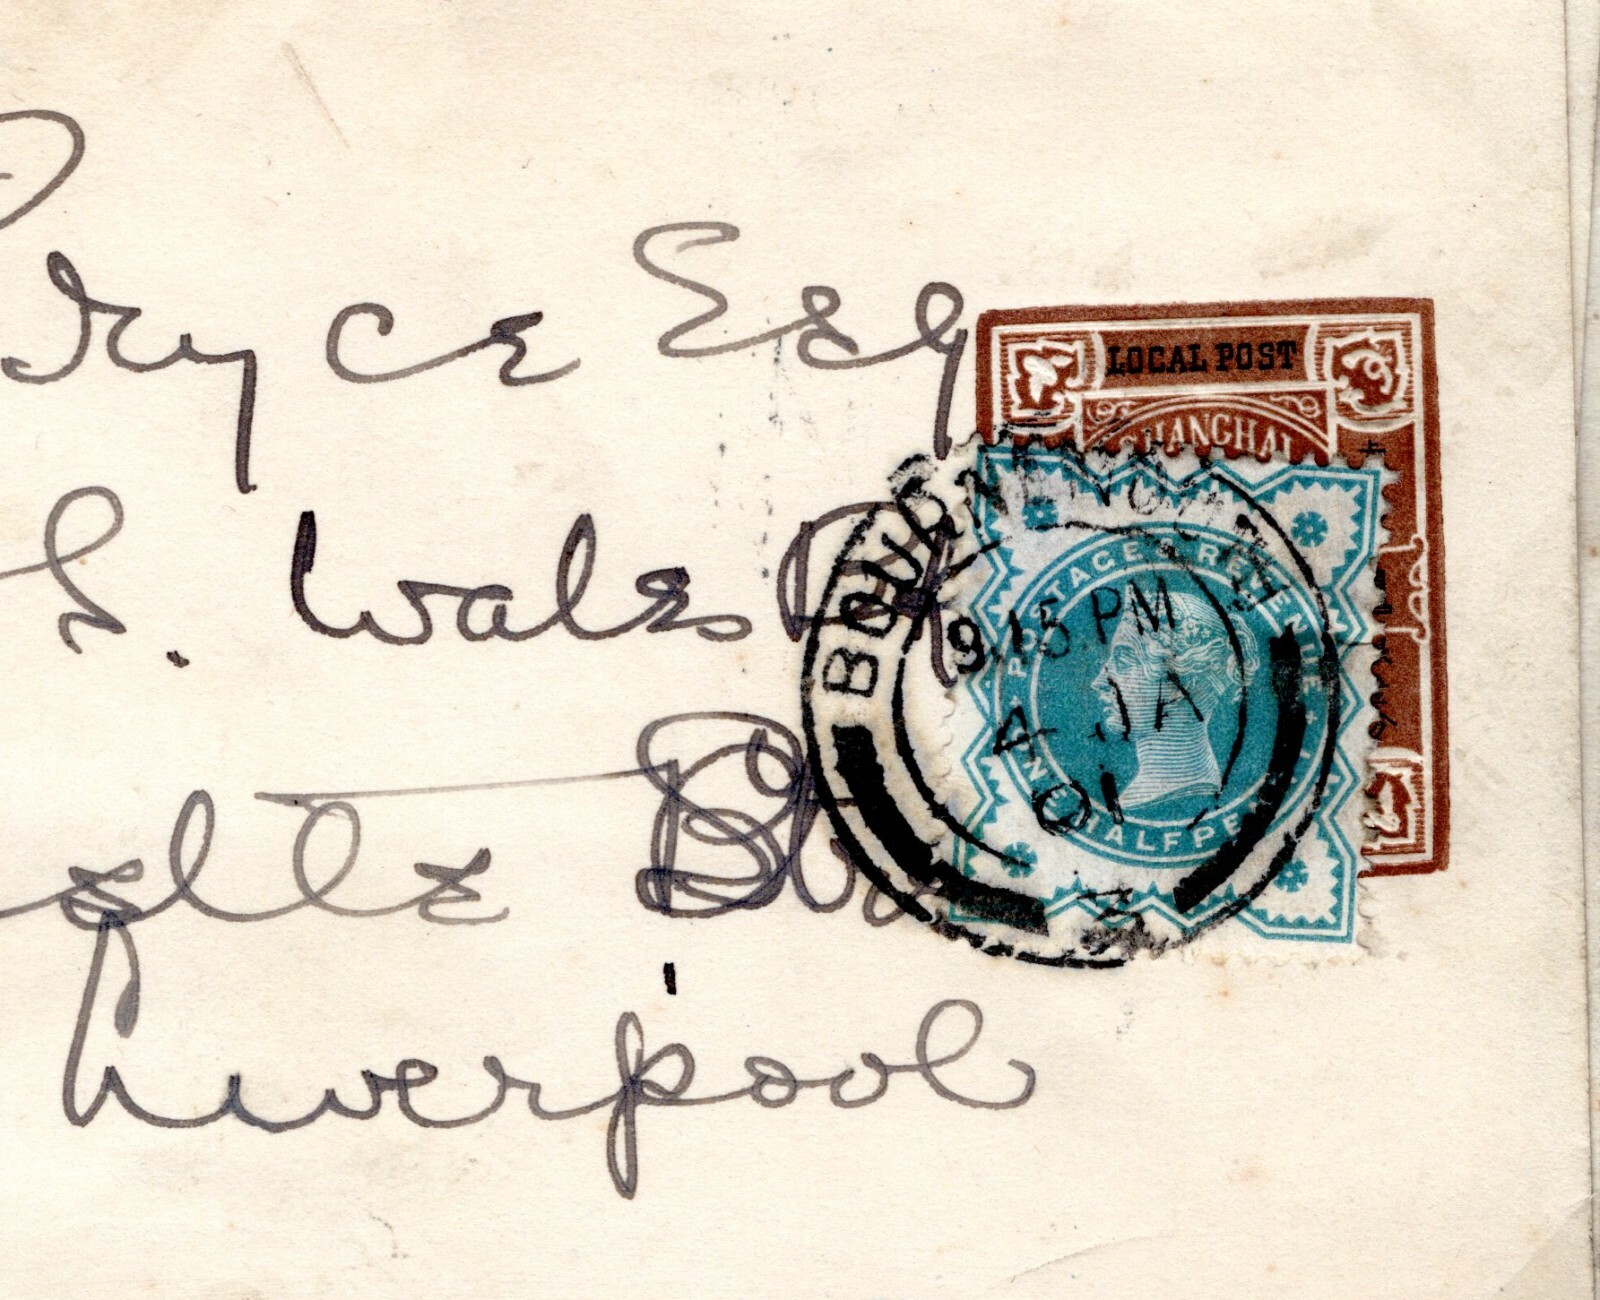 Pryce Esq
S. Wales Rd
elle
Liverpool
LOCAL POST
SHANGHAI
BOURNEMOUTH
9.15 PM
4 JA
01
3
POSTAGE & REVENUE
ONE HALFPENNY